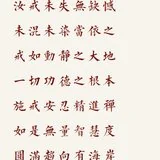 汝戒未失無缺憾
未混未染當依之
戒如動靜之大地
一切功德之根本
施戒安忍精進禪
如是無量智慧度
圓滿超向有海岸